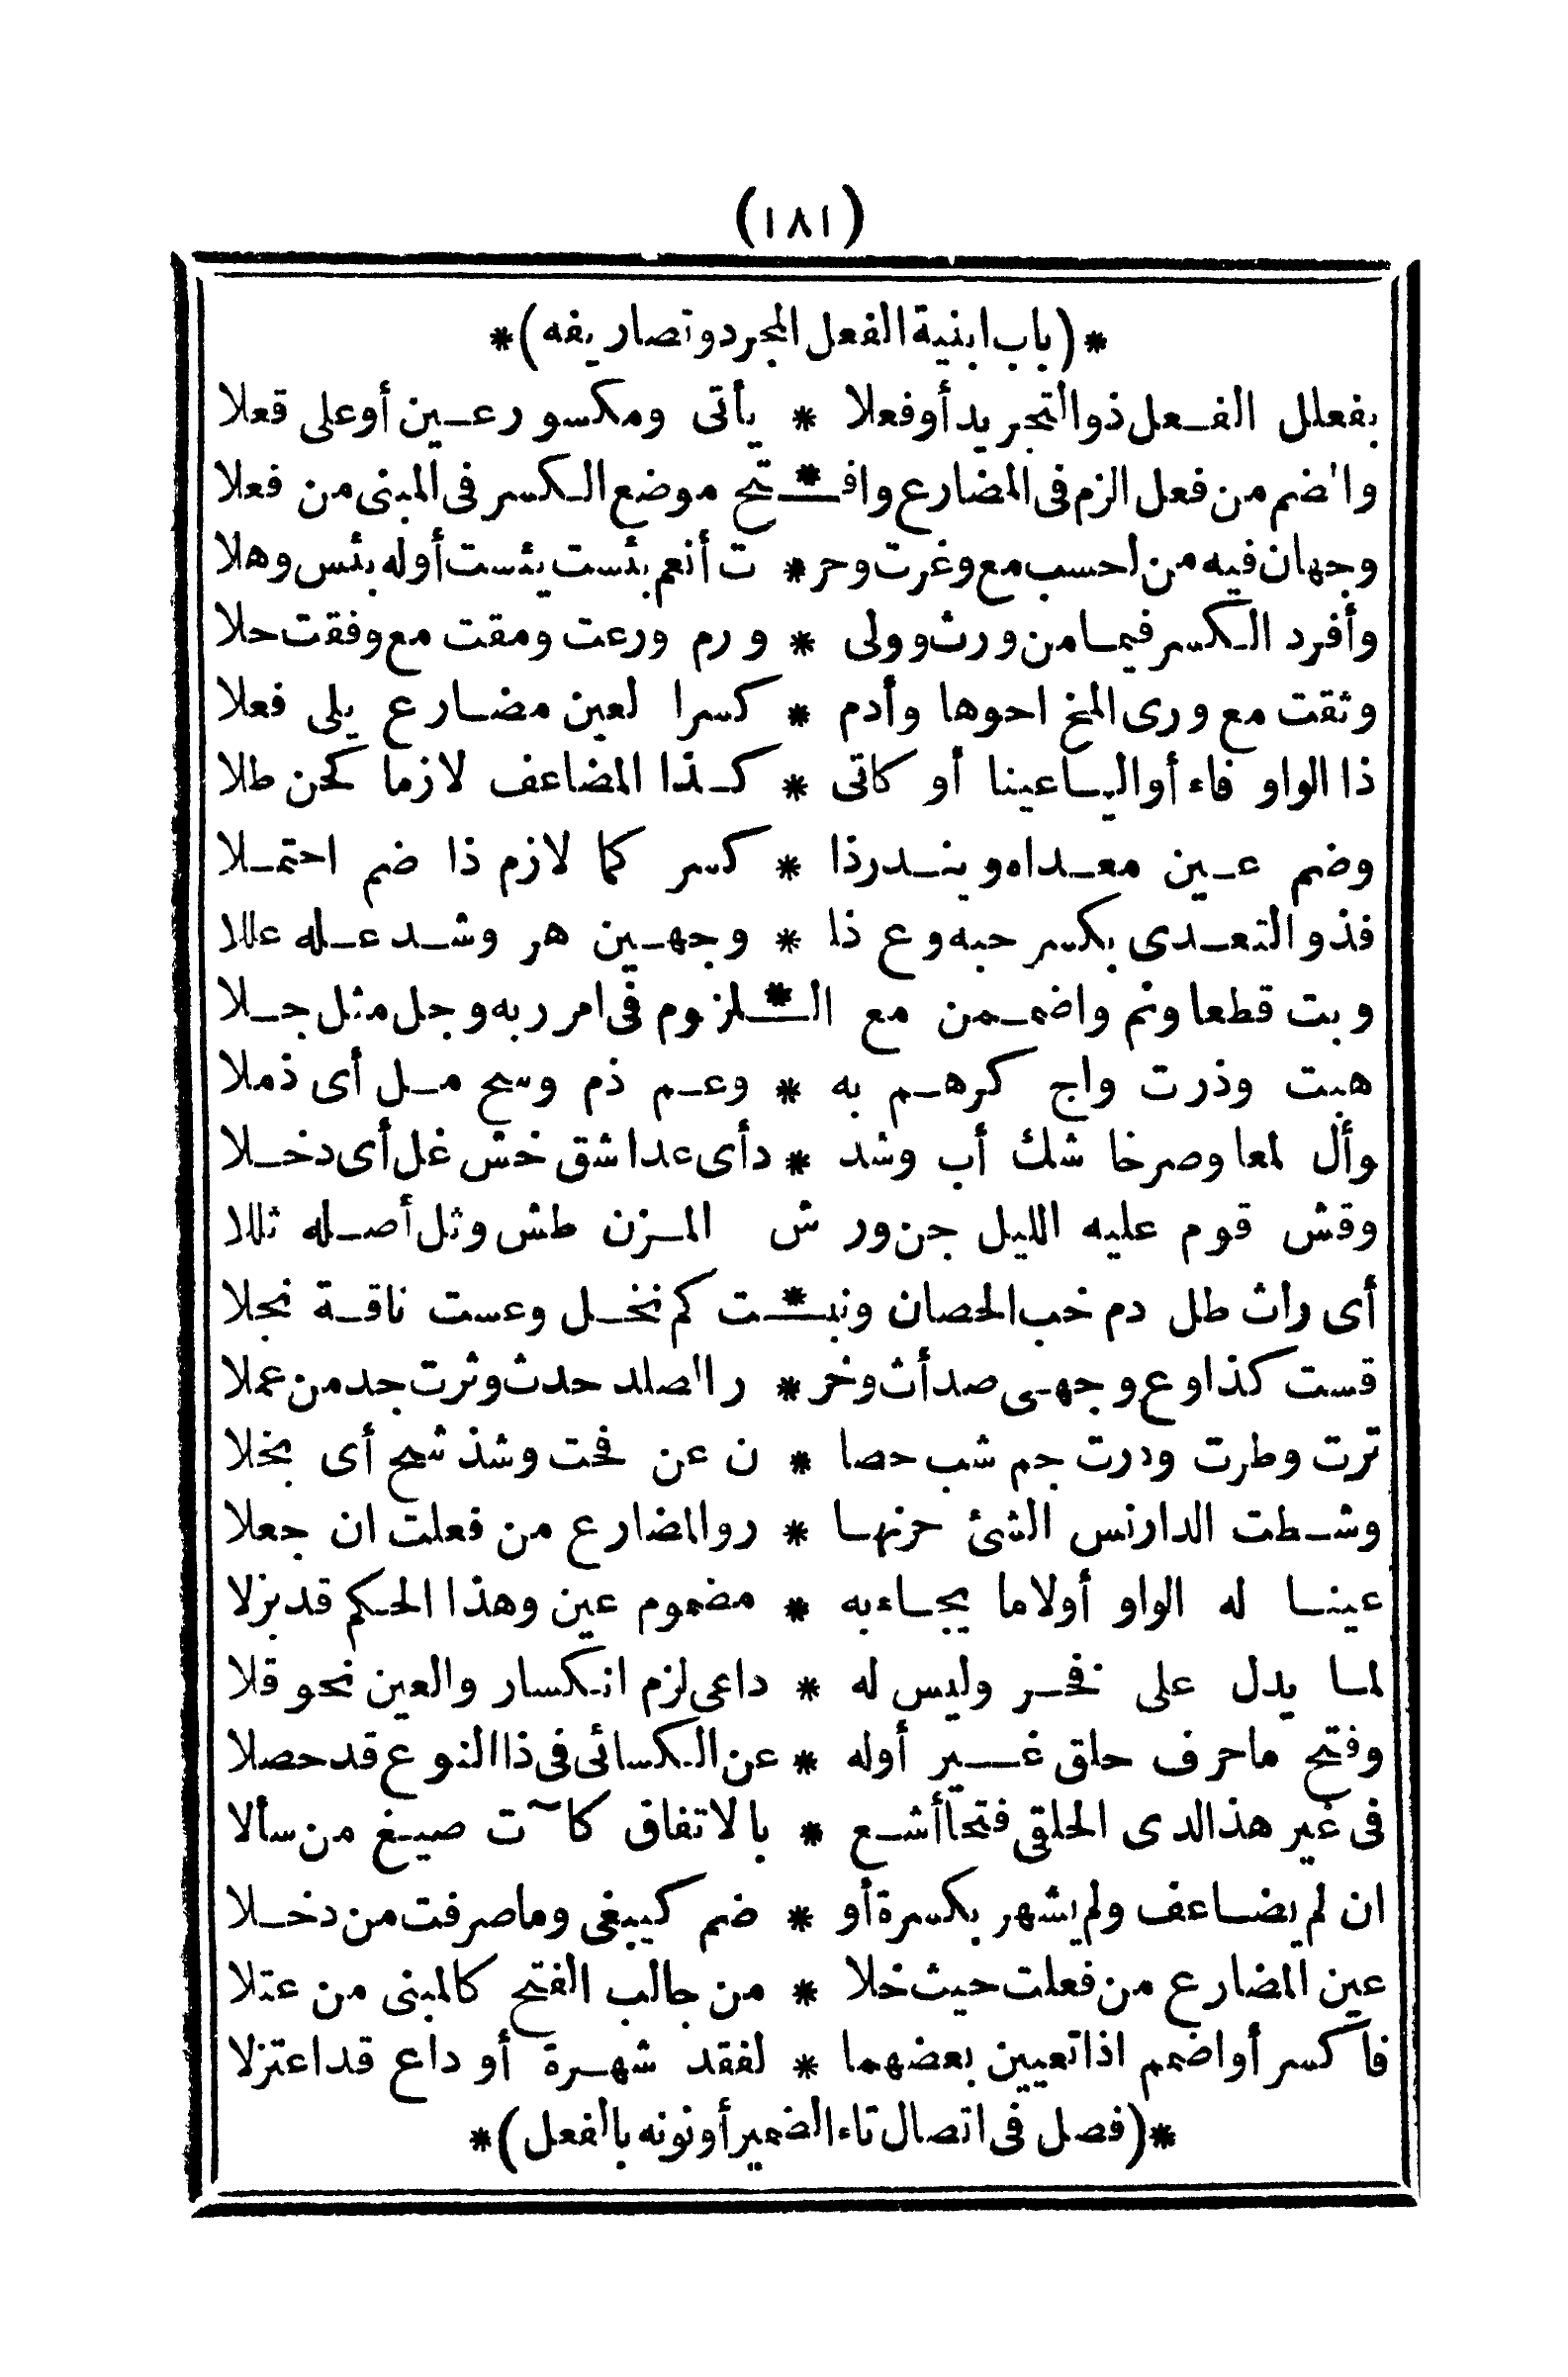 (١٨١)
*(باب ابنية الفعل المجرد وتصاريفه)*
بفعلل الفعل ذو التجريد أو فعلا * يأتى ومكسور عين أو على فعلا
والضم من فعل الزم فى المضارع وافـ*ـتح موضع الكسر فى المبنى من فعلا
وجهان فيه من احسب مع وغرت وحر * ت أنعم بئست يئست أوله يبس وهلا
وأفرد الكسر فيما من ورث وولى * ورم ورعت ومقت مع وفقت حلا
وثقت مع ورى المخ احوها وأدم * كسرا لعين مضارع يلى فعلا
ذا الواو فاء أو اليا عينا أو كاتى * كذا المضاعف لازما كحن طلا
وضم عين معداه ويندر ذا * كسر كما لازم ذا ضم احتملا
فذو التعدى بكسر حبه وع ذا * وجهين هر وشد عله عللا
وبت قطعا ونم واضممن مع الـ*ـلزوم فى امرر به وجل مثل جلا
هبت وذرت واج كر هم به * وعم ذم وسح مل أى ذملا
وأل لمعا وصرخا شك أب وشد * د أى عدا شق خش غل أى دخلا
وقش قوم عليه الليل جن ورش المزن طش وثل أصله ثللا
أى راث طل دم خب الحصان ونبـ*ـت كم نخل وعست ناقة نجلا
قست كذا وع وجهى صد أث وخر * ر الصلد حدث وثرت جد من عملا
ترت وطرت ودرت جم شب حصا * ن عن فحت وشذ شح أى بخلا
وشطت الدار نس الشئ حرنها * ر والمضارع من فعلت ان جعلا
عينا له الواو أو لاما يجاء به * مضموم عين وهذا الحكم قد بزلا
لما يدل على فخر وليس له * داعى لزم انكسار والعين نحو قلا
وفتح ما حرف حلق غير أوله * عن الكسائى فى ذا النوع قد حصلا
فى غير هذ الدى الحلقى فتحا أشع * بالاتفاق كآت صيغ من سألا
ان لم يضاعف ولم يشهر بكسرة أو * ضم كيبغى وما صرفت من دخلا
عين المضارع من فعلت حيث خلا * من جالب الفتح كالمبنى من عتلا
فاكسر أو اضمم اذا تعيين بعضهما * لفقد شهرة أو داع قد اعتزلا
*(فصل فى اتصال تاء الضمير أو نونه بالفعل)*